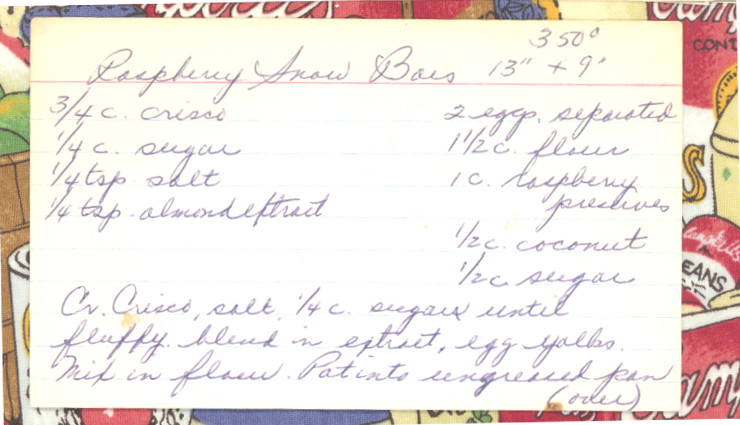 350°
Raspberry Snow Bars 13" + 9"
3/4 c. crisco
1/4 c. sugar
1/4 tsp salt
1/4 tsp. almond extract
2 eggs, separated
1 1/2 c. flour
1 c. raspberry
preserves
1/2 c. coconut
1/2 c. sugar
Cr. Crisco, salt, 1/4 c. sugar until
fluffy. blend in extract, egg yolks.
Mix in flour. Pat into ungreased pan
(over)
CONT
EANS